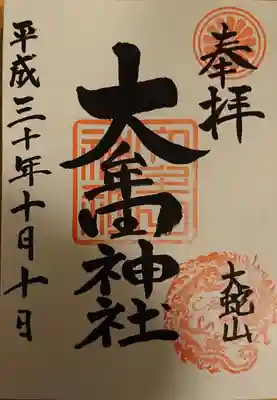 奉拝
大蛇山
大牟田神社
平成三十年十月十日